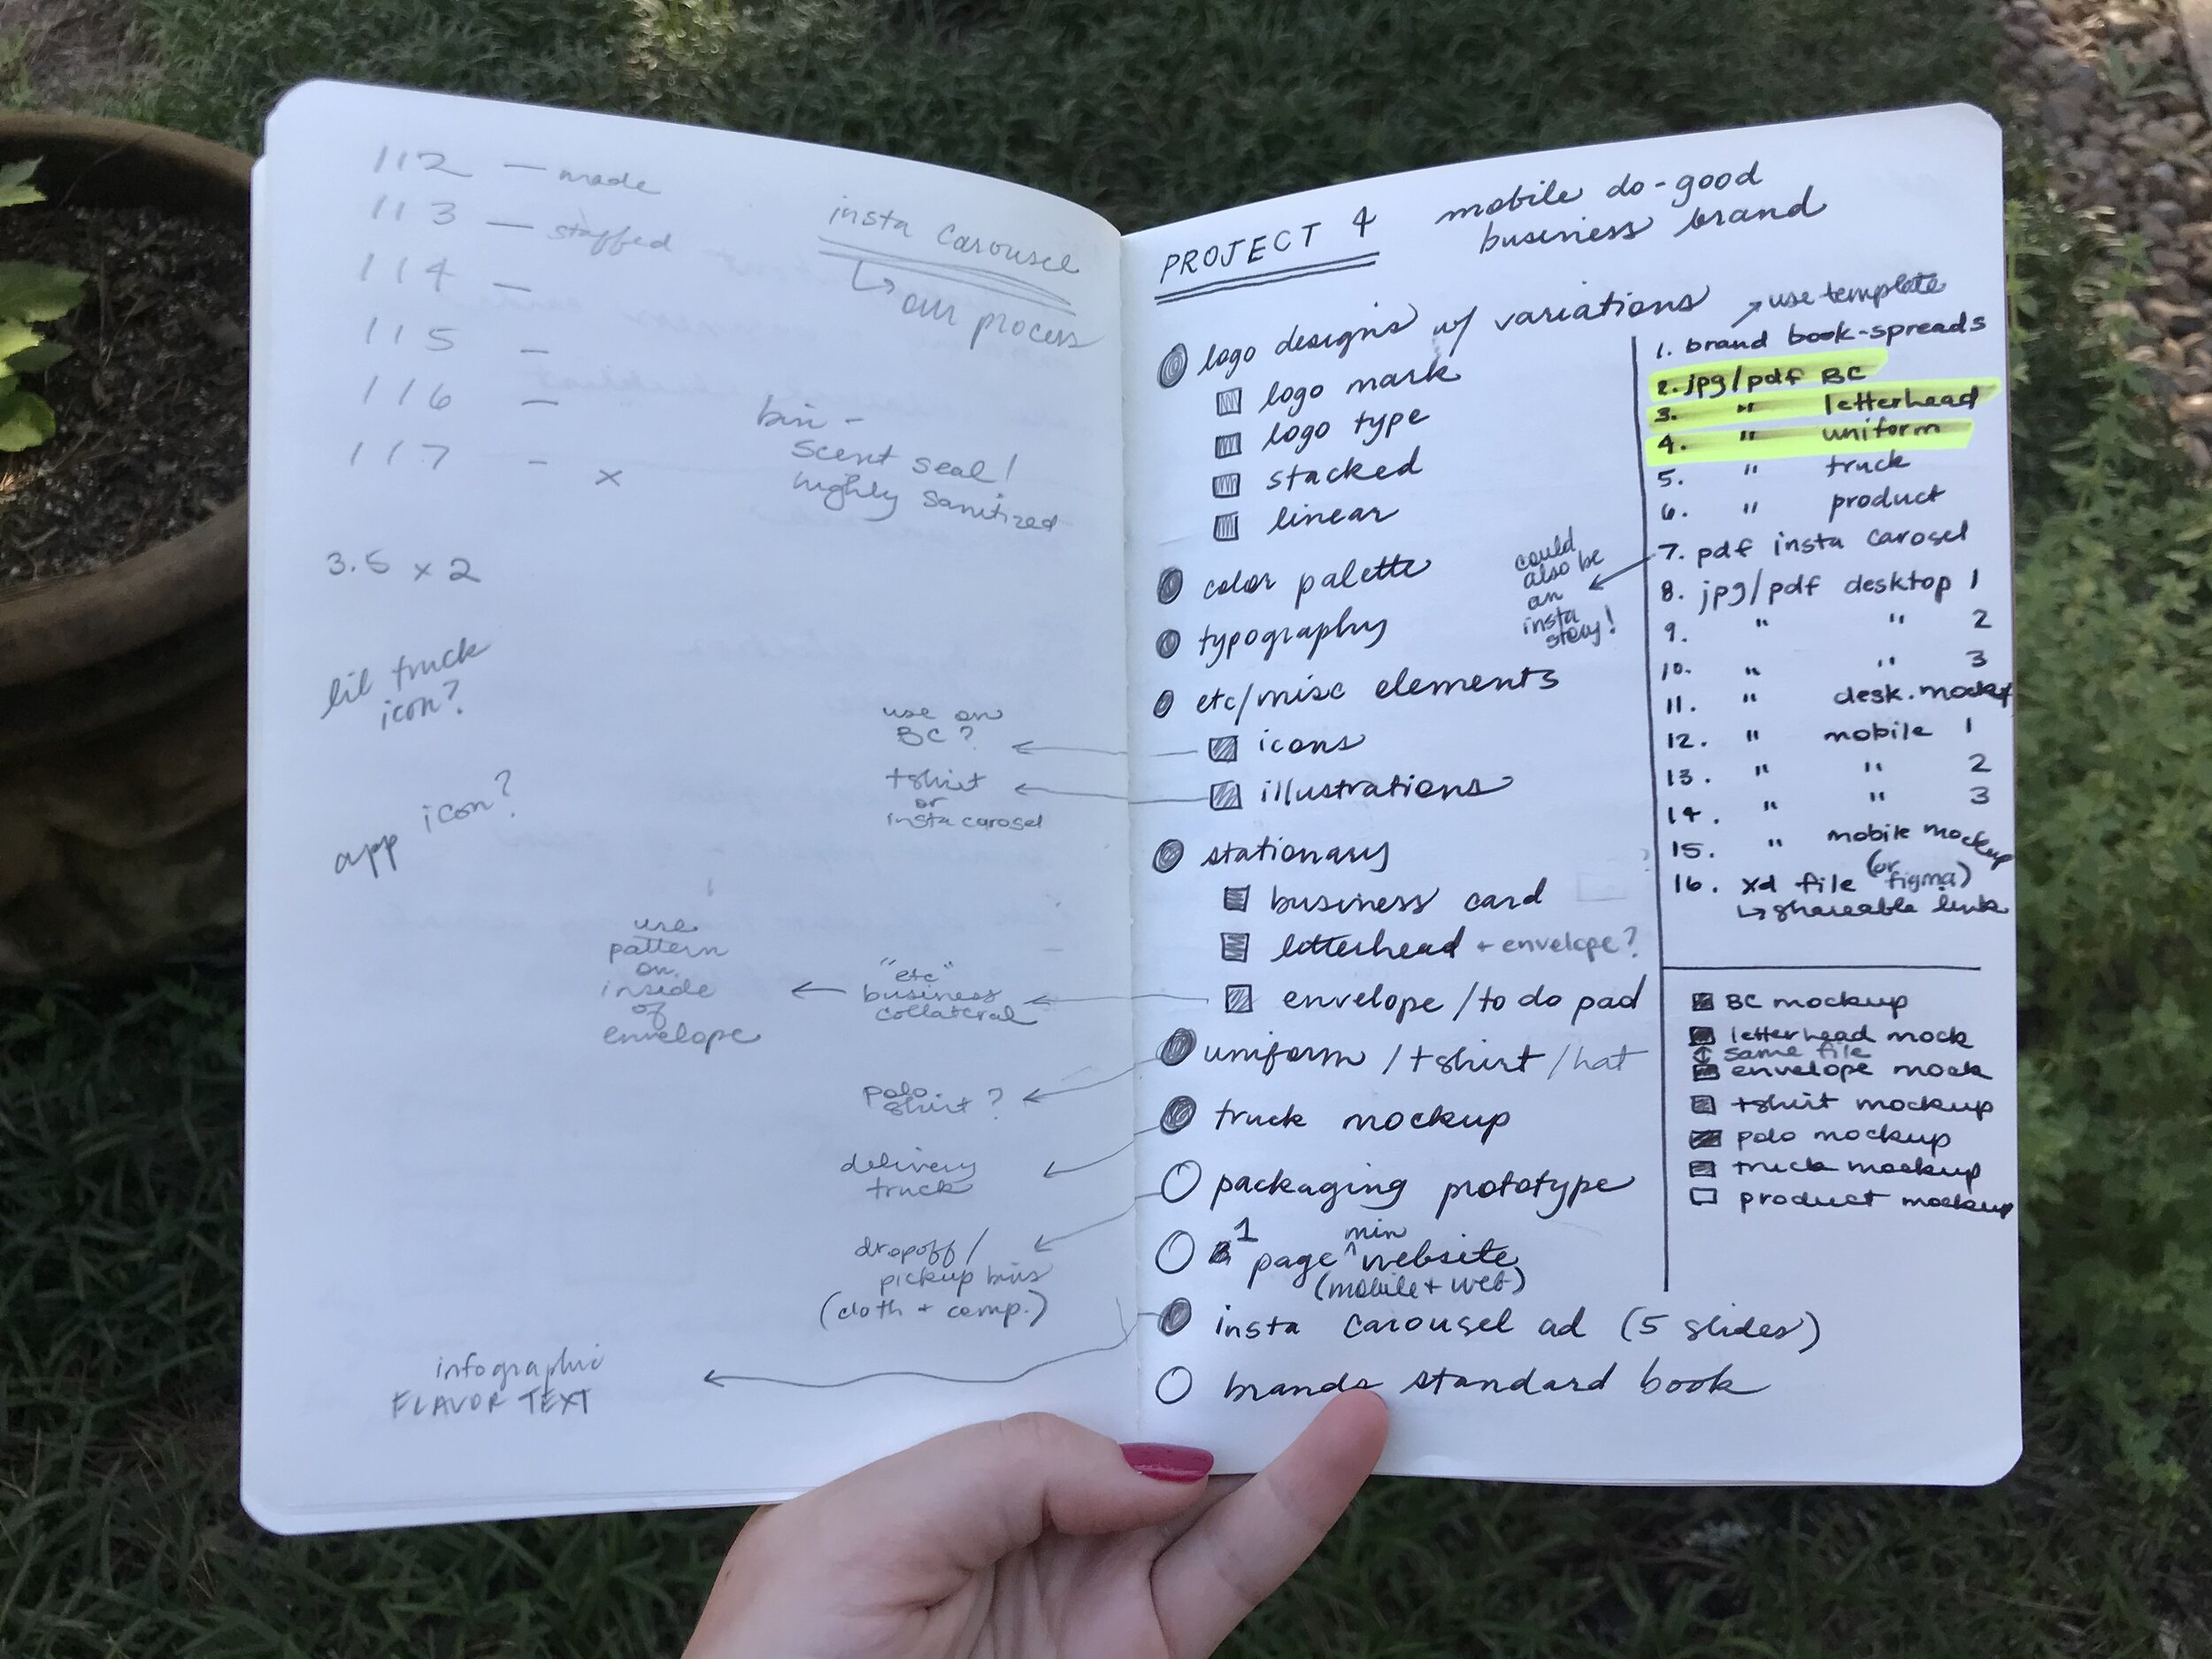 112 — made
113 — staffed
114 —
115 —
116 —
117 - x
insta carousel
↳ our process
bin -
scent seal!
highly sanitized
3.5 x 2
lil truck
icon?
app icon?
use on
BC?
tshirt
or
insta carosel
use
pattern
on
inside
of
envelope
"etc"
business
collateral
polo
shirt?
delivery
truck
dropoff/
pickup bins
(cloth + comp.)
infographic
FLAVOR TEXT
PROJECT 4
mobile do-good
business brand
logo designs w/ variations
logo mark
logo type
stacked
linear
color palette
typography
etc/misc elements
icons
illustrations
stationary
business card
letterhead + envelope?
envelope / to do pad
uniform / tshirt / hat
truck mockup
packaging prototype
1 page ^min website
(mobile + web)
insta carousel ad (5 slides)
brands standard book
↗ use template
1. brand book-spreads
2. jpg/pdf BC
3. " letterhead
4. " uniform
5. " truck
6. " product
7. pdf insta carosel
could
also be
an
insta
story!
8. jpg/pdf desktop 1
9. " " 2
10. " " 3
11. " desk. mockup
12. " mobile 1
13. " " 2
14. " " 3
15. " mobile mockup
16. xd file (or figma)
↳ shareable link
BC mockup
letterhead mock
↕ same file
envelope mock
tshirt mockup
polo mockup
truck mockup
product mockup